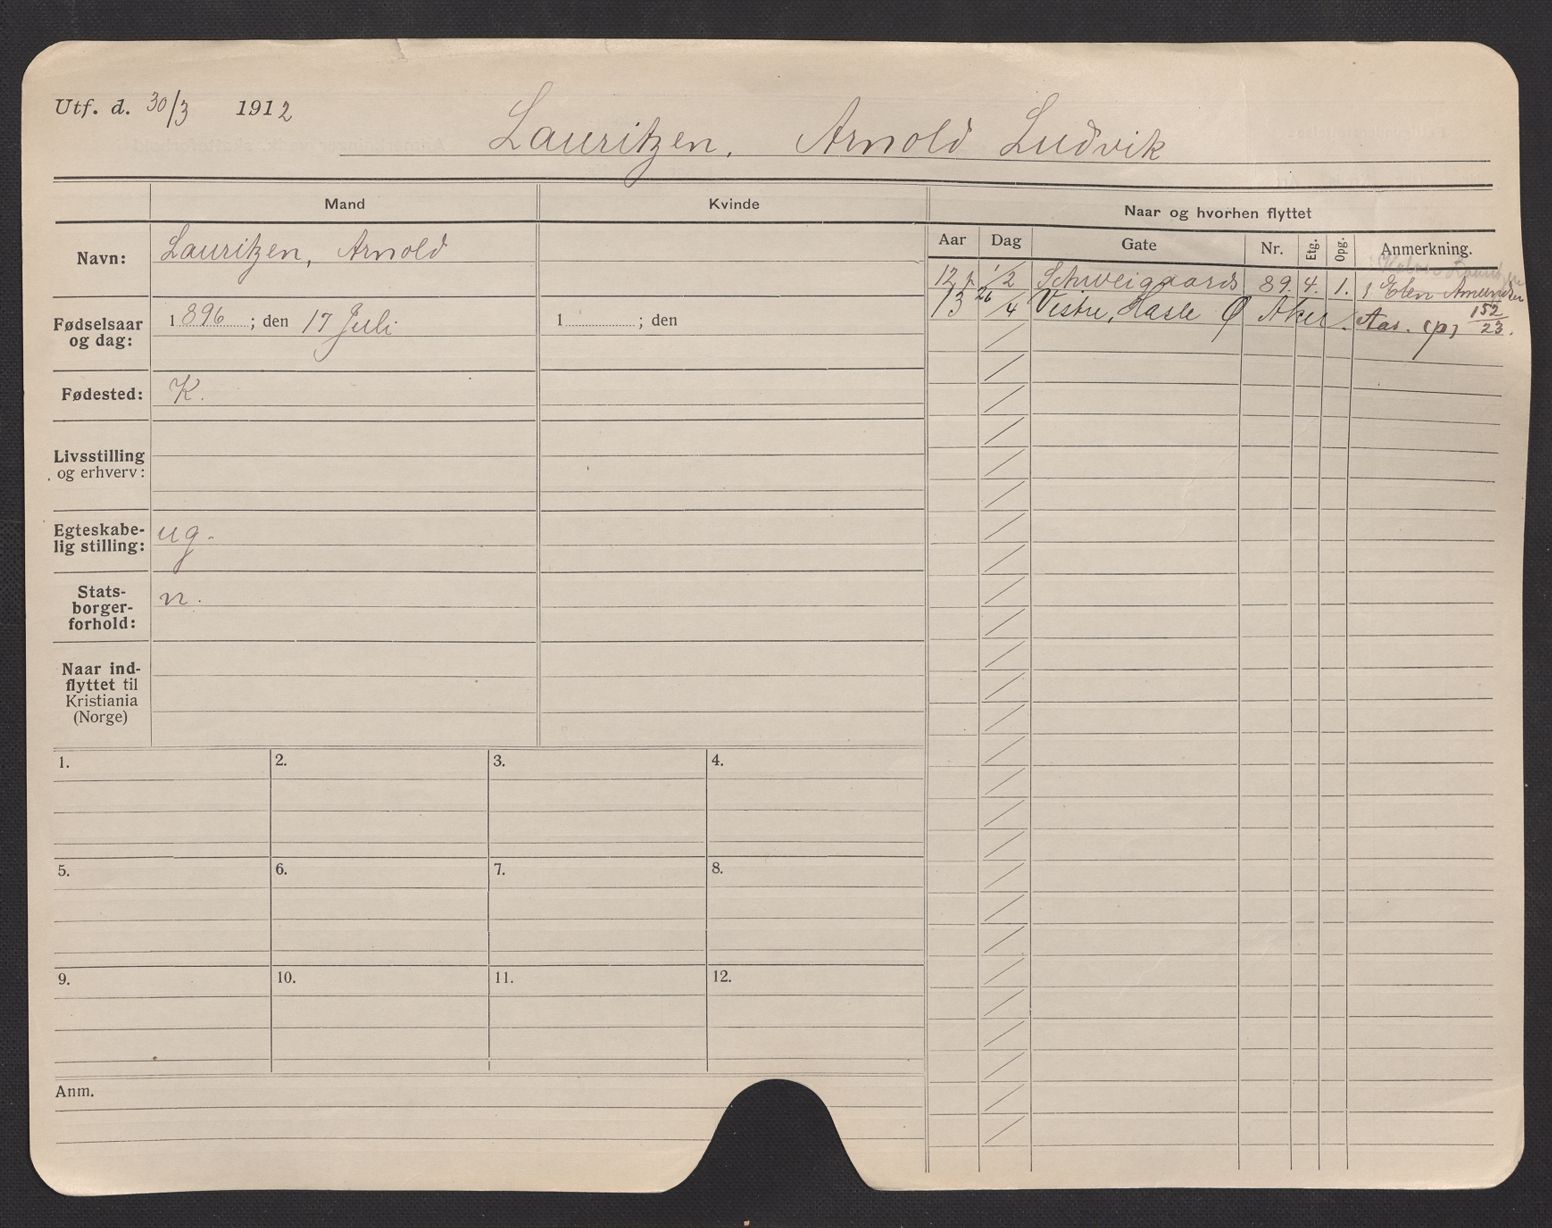 Utf. d. 30/3 1912
Lauritzen, Arnold Ludvik
Mand
Kvinde
Navn:
Lauritzen, Arnold
Fødselsaar og dag:
1896; den 17 Juli
1 ; den
Fødested:
K.
Livsstilling og erhverv:
Egteskabelig stilling:
ug.
Statsborgerforhold:
n.
Naar indflyttet til Kristiania (Norge)
1.
2.
3.
4.
5.
6.
7.
8.
9.
10.
11.
12.
Anm.
Naar og hvorhen flyttet
Aar Dag Gate Nr. Etg. Opg. Anmerkning.
12 1/2 Schweigaards 89. 4. 1. Elen Amundsen
13 26/4 Vestre, Hasle Ø Aker Aas. (p) 152/23.